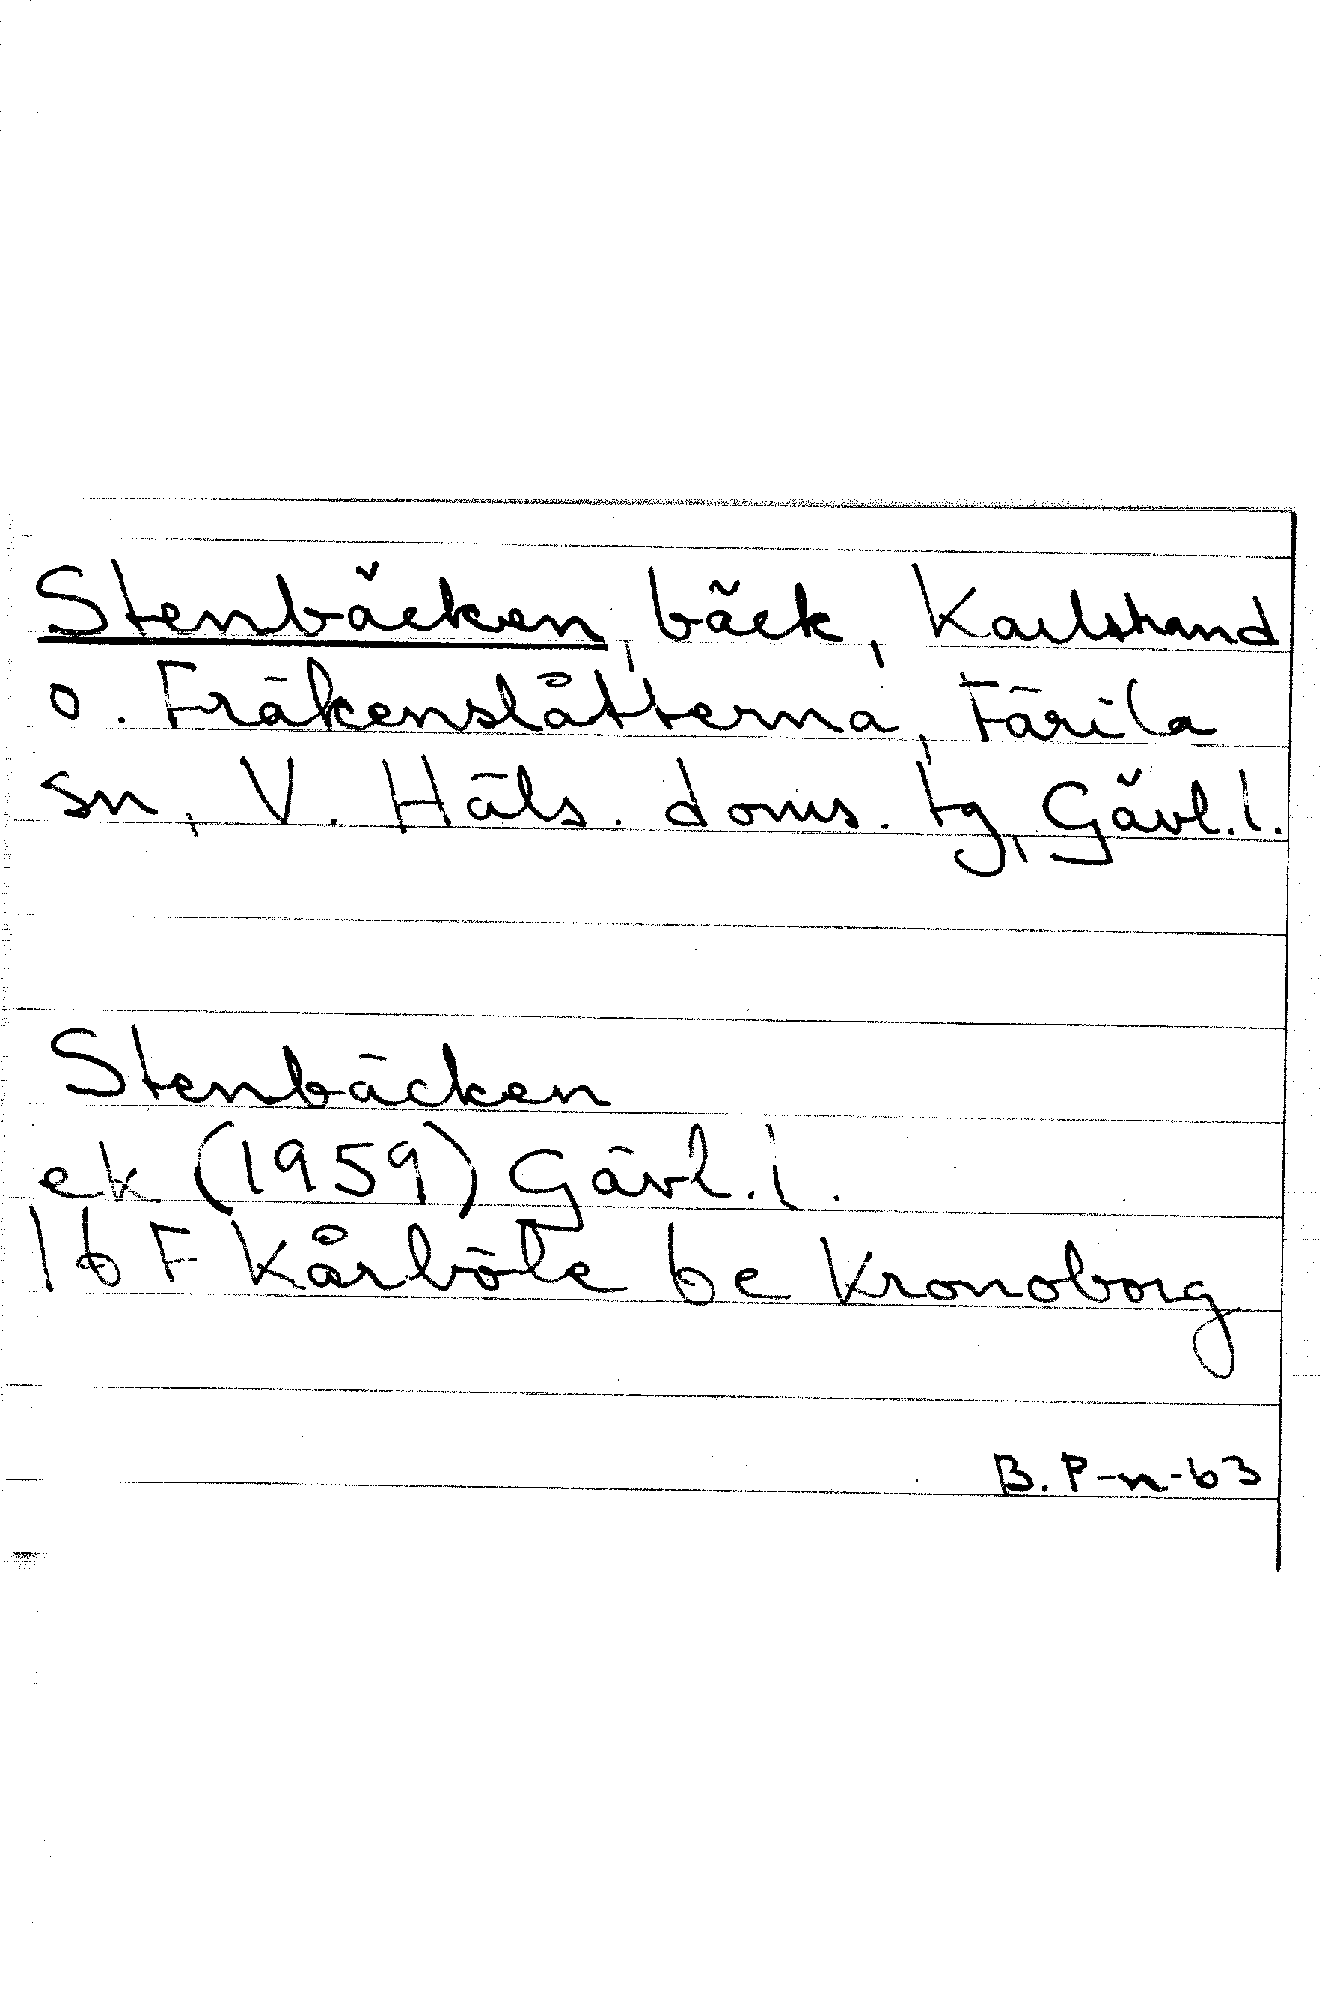 Stenbäcken, bäck, Karlstrand
o. Fräkenslåtterna, Färila
sn, V. Häls. doms. tg, Gävl. l.
Stenbäcken
ek (1959) Gävl. l.
16 F Kårböle 6 c Kronoborg
B. P-n-63